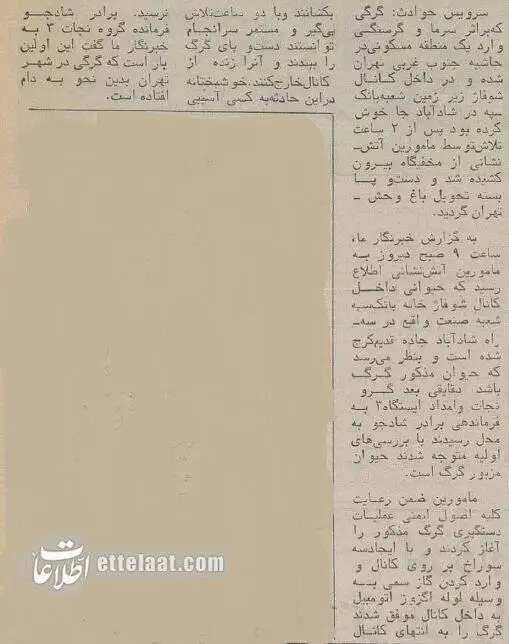 سرویس حوادث: گرگی
که براثر سرما و گرسنگی
وارد یک منطقه مسکونی در
حاشیه جنوب غربی تهران
شده و در داخل کانال
شوفاژ زیر زمین شعبه بانک
سپه در شادآباد جا خوش
کرده بود پس از ۲ ساعت
تلاش توسط مامورین آتش‌ـ
نشانی از مخفیگاه بیرون
کشیده شد و دست و پا
بسته تحویل باغ وحش ـ
تهران گردید.
به گزارش خبرنگار ما،
ساعت ۹ صبح دیروز به
مامورین آتش‌نشانی اطلاع
رسید که حیوانی داخل
کانال شوفاژ خانه بانک سپه
شعبه صنعت واقع در سه‌ـ
راه شادآباد جاده قدیم کرج
شده است و بنظر می‌رسد
که حیوان مذکور گرگ
باشد دقایقی بعد گرو
نجات وامداد ایستگاه ۳ به
فرماندهی برادر شادجو به
محل رسیدند با بررسی‌های
اولیه متوجه شدند حیوان
مزبور گرگ است.
مامورین ضمن رعایت
کلیه اصول ایمنی عملیات
دستگیری گرگ مذکور را
آغاز کردند و با ایجاد سه
سوراخ بر روی کانال و
وارد کردن گاز سمی به
وسیله لوله اگزوز اتومبیل
به داخل کانال موفق شدند
گرگ را به انتهای کانال
بکشانند و با دو ساعت تلاش
پی‌گیر و مستمر سرانجام
توانستند دست و پای گرگ
را ببندند و آنرا زنده از
کانال خارج کنند. خوشبختانه
در این حادثه به کسی آسیبی
نرسید. برادر شادجو
فرمانده گروه نجات ۳ به
خبرنگار ما گفت این اولین
بار است که گرگی در شهر
تهران بدین نحو به دام
افتاده است.
اطلاعات ettelaat.com